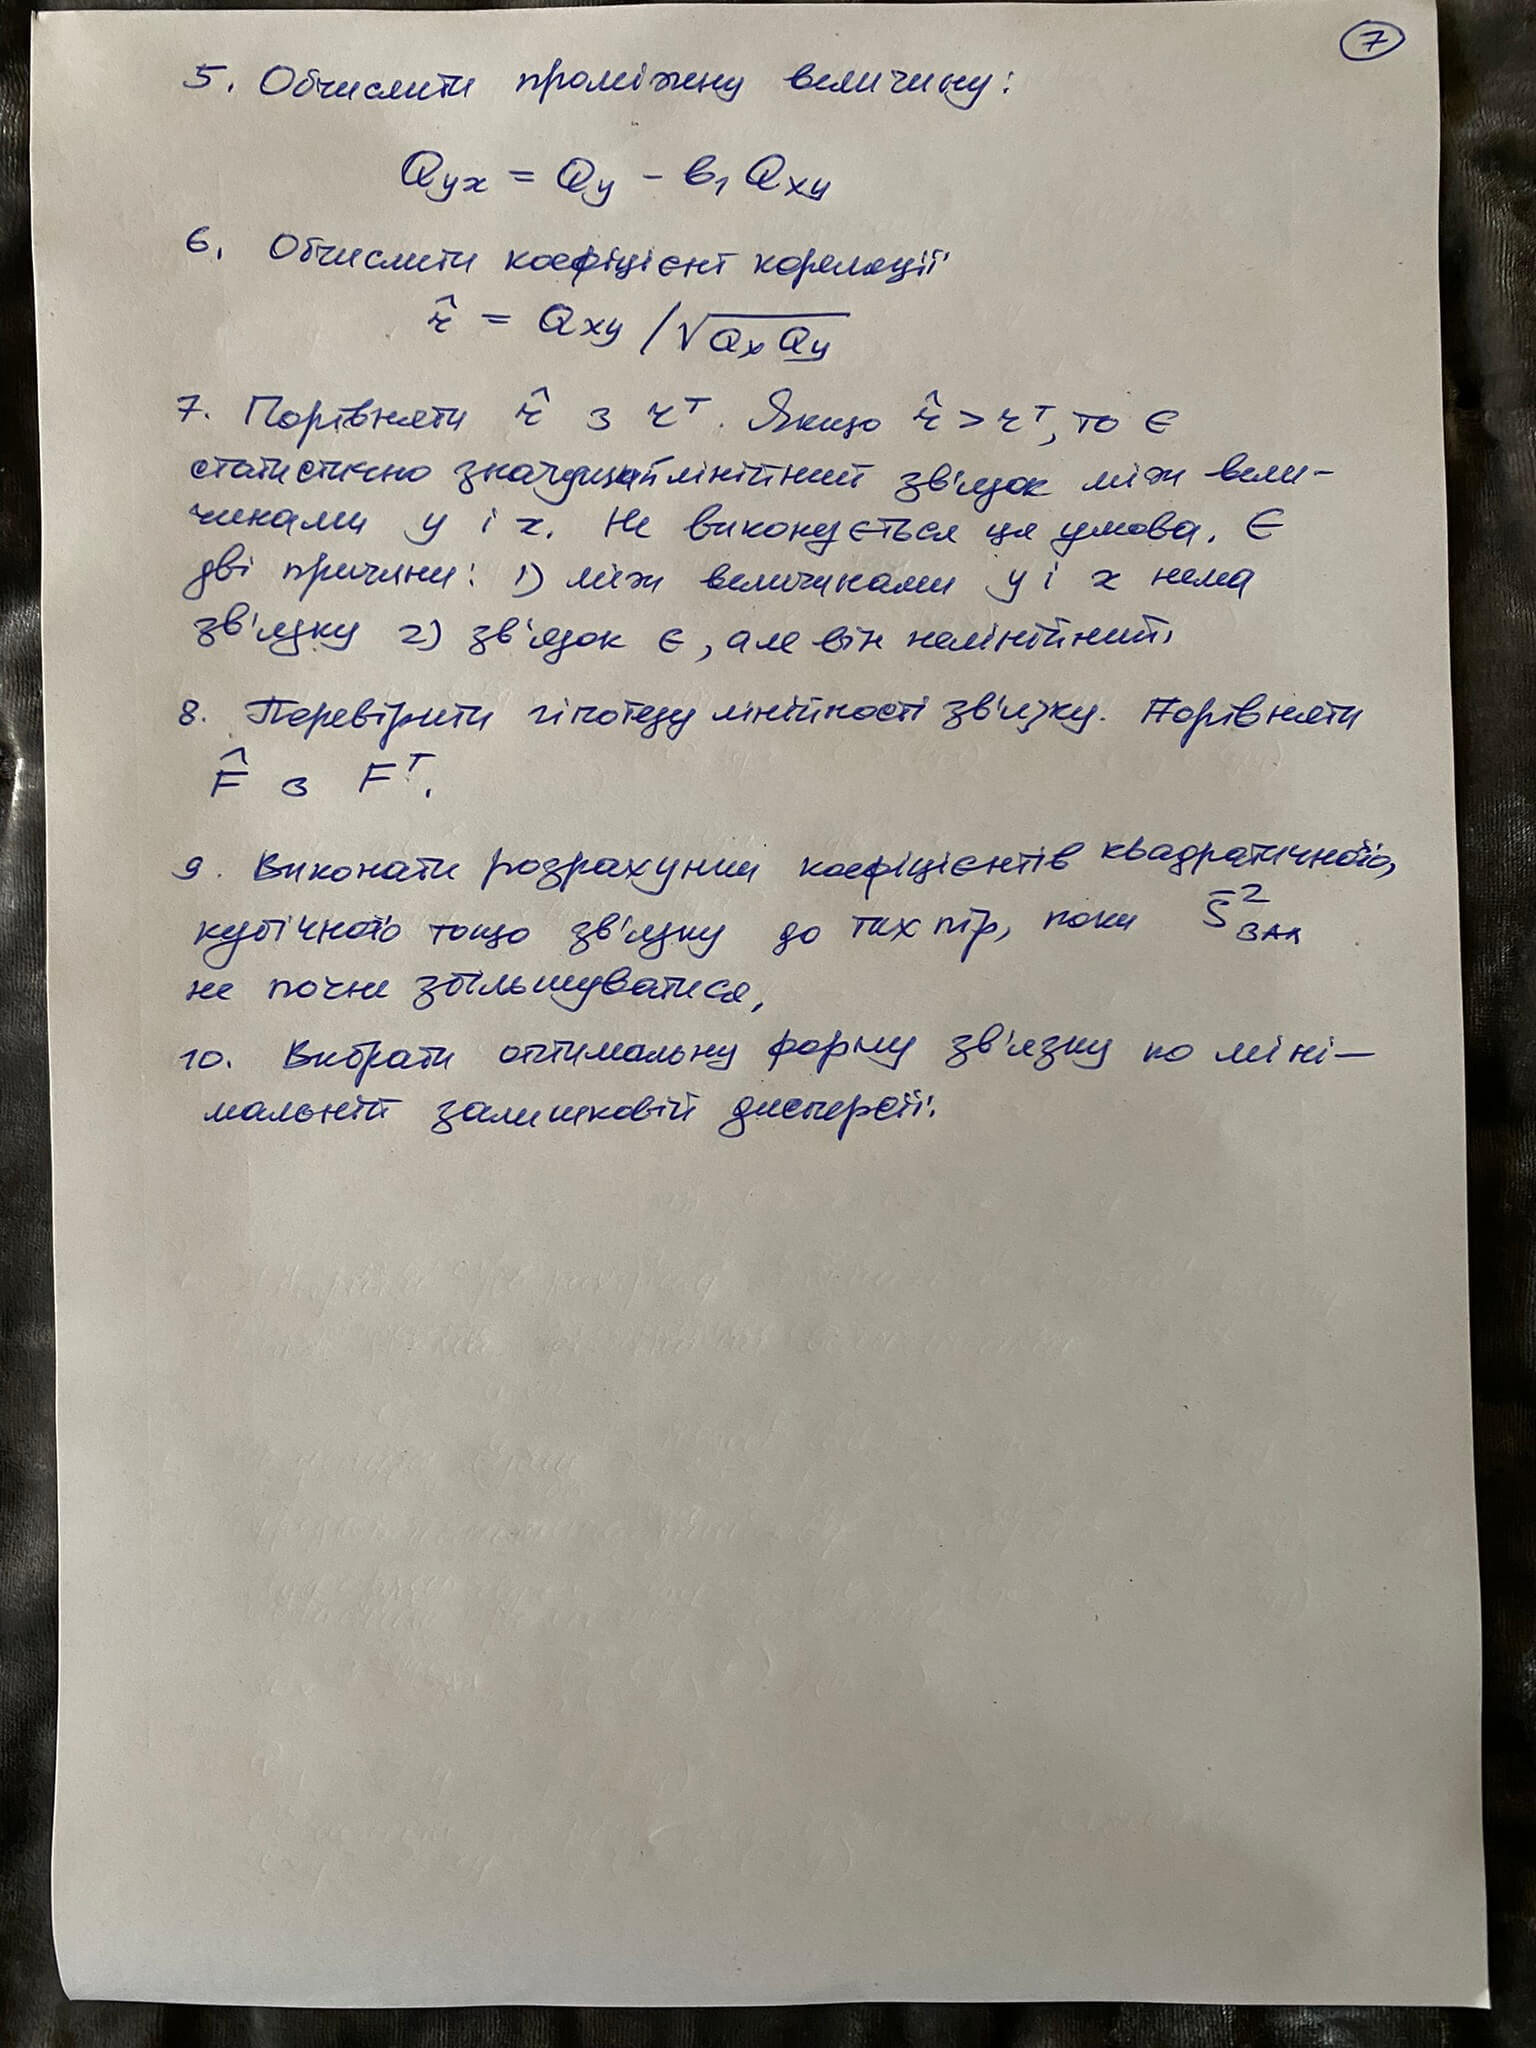 7
5. Обчислити проміжну величину:
Qyx = Qy - b₁ Qxy
6. Обчислити коефіцієнт кореляції
r̂ = Qxy / √(Qx Qy)
7. Порівняти r̂ з rᵀ. Якщо r̂ > rᵀ, то є
статистично значущий лінійний зв'язок між вели-
чинами y і x. Не виконується ця умова. Є
дві причини: 1) між величинами y і x нема
зв'язку 2) зв'язок є, але він нелінійний.
8. Перевірити гіпотезу лінійності зв'язку. Порівняти
F̂ з Fᵀ.
9. Виконати розрахунки коефіцієнтів квадратичного,
кубічного тощо зв'язку до тих пір, поки S̄²зал
не почне збільшуватися,
10. Вибрати оптимальну форму зв'язку по міні-
мальній залишковій дисперсії.